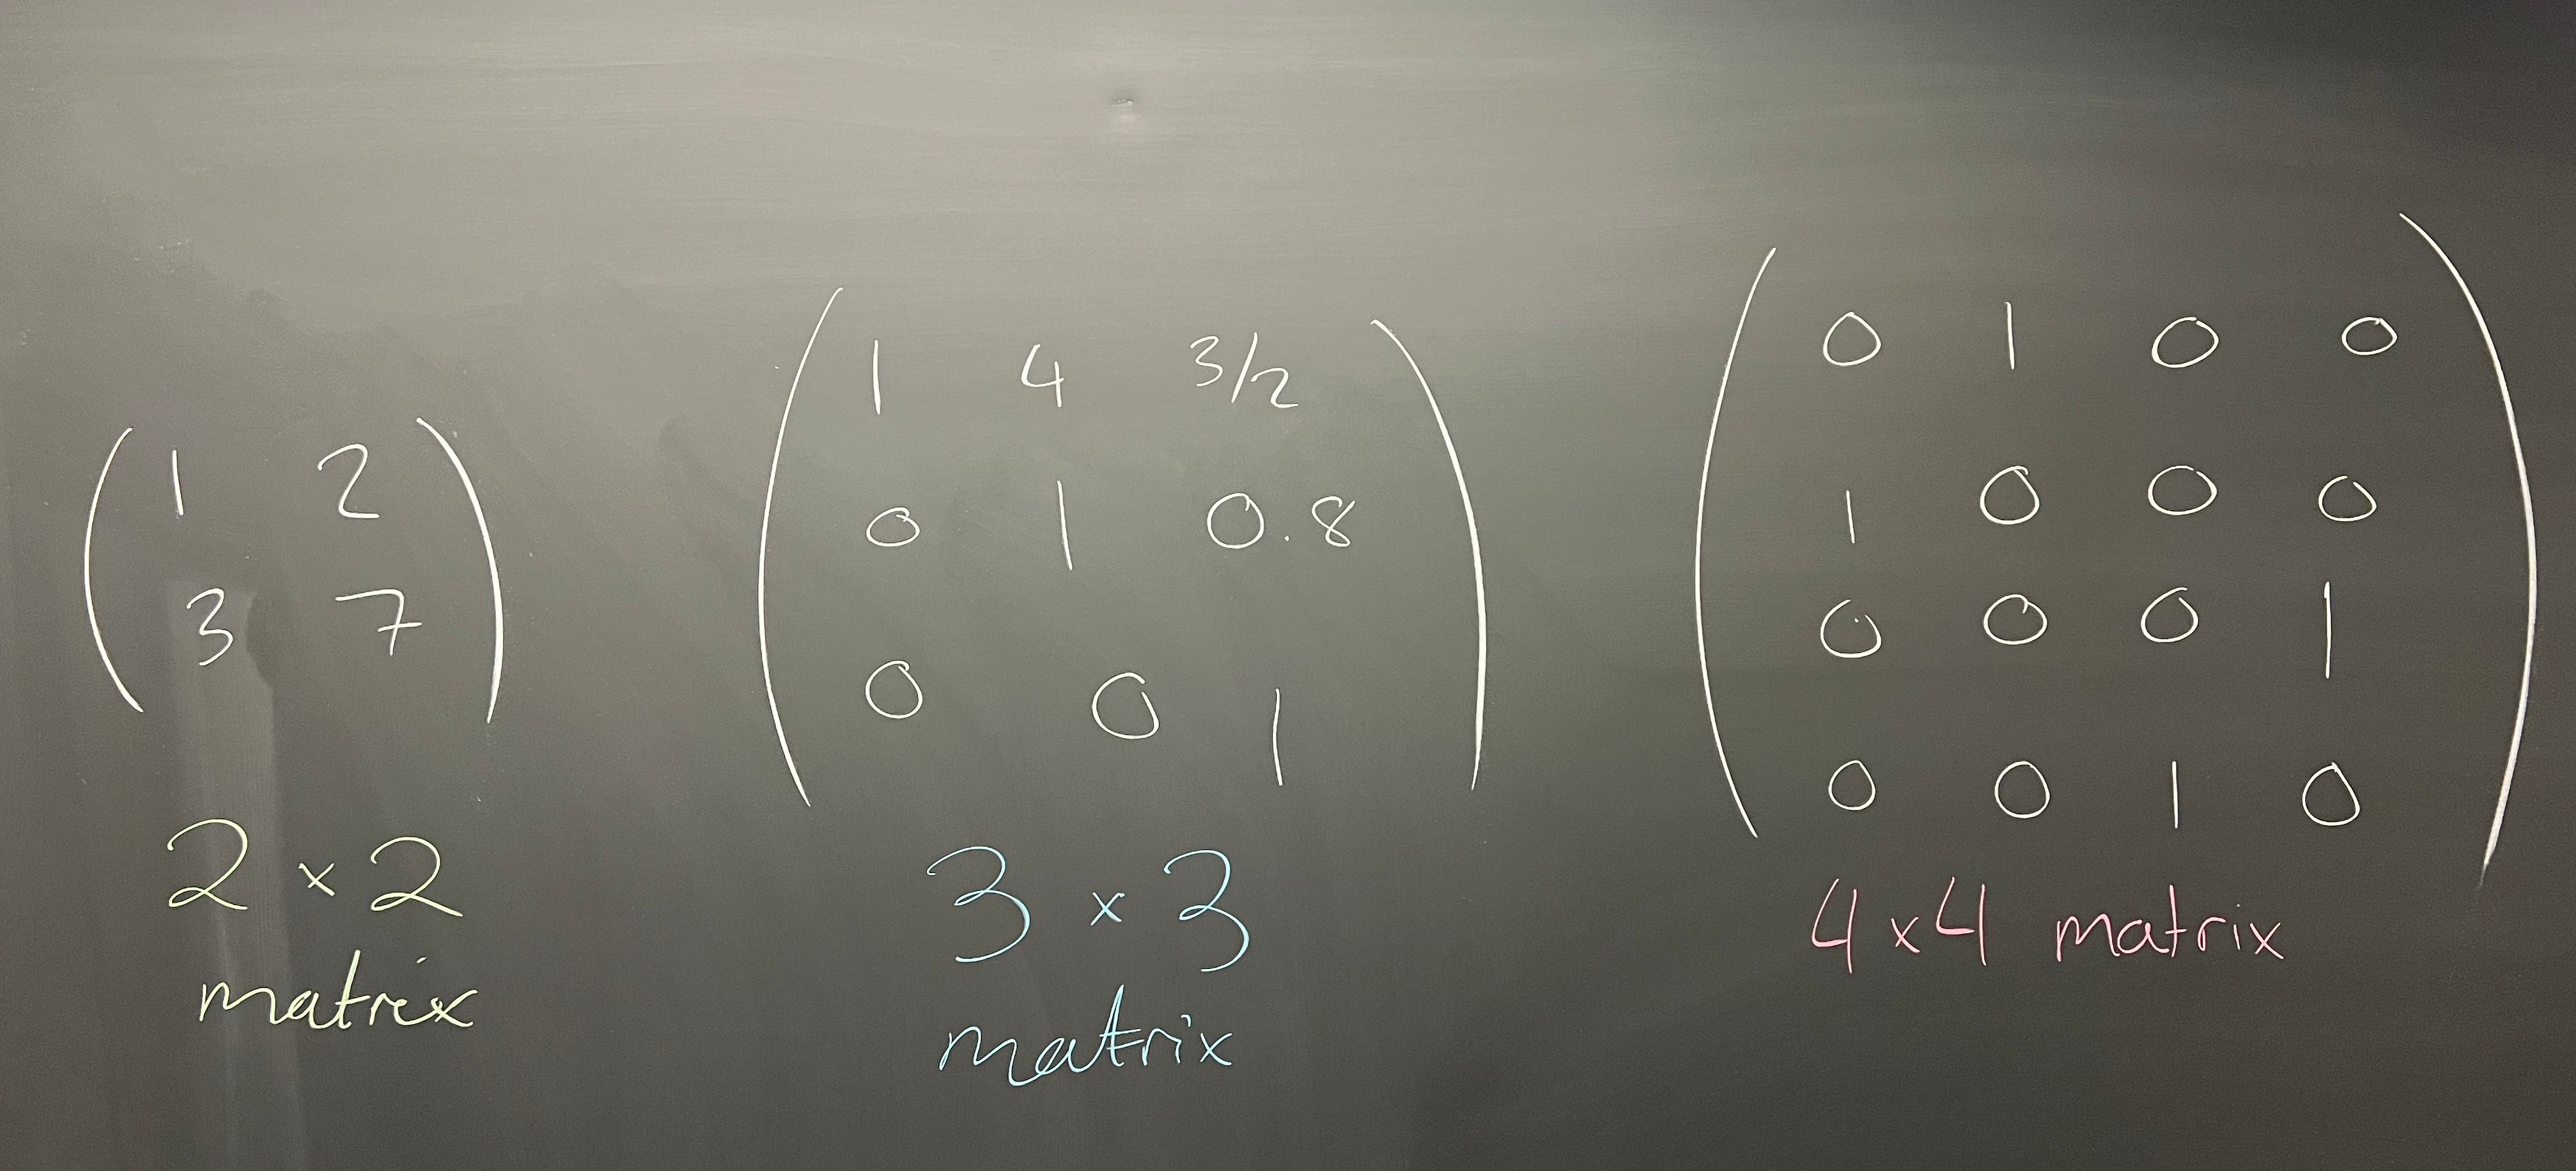 1 2
3 7
2 × 2
matrix
1 4 3/2
0 1 0.8
0 0 1
3 × 3
matrix
0 1 0 0
1 0 0 0
0 0 0 1
0 0 1 0
4 × 4 matrix